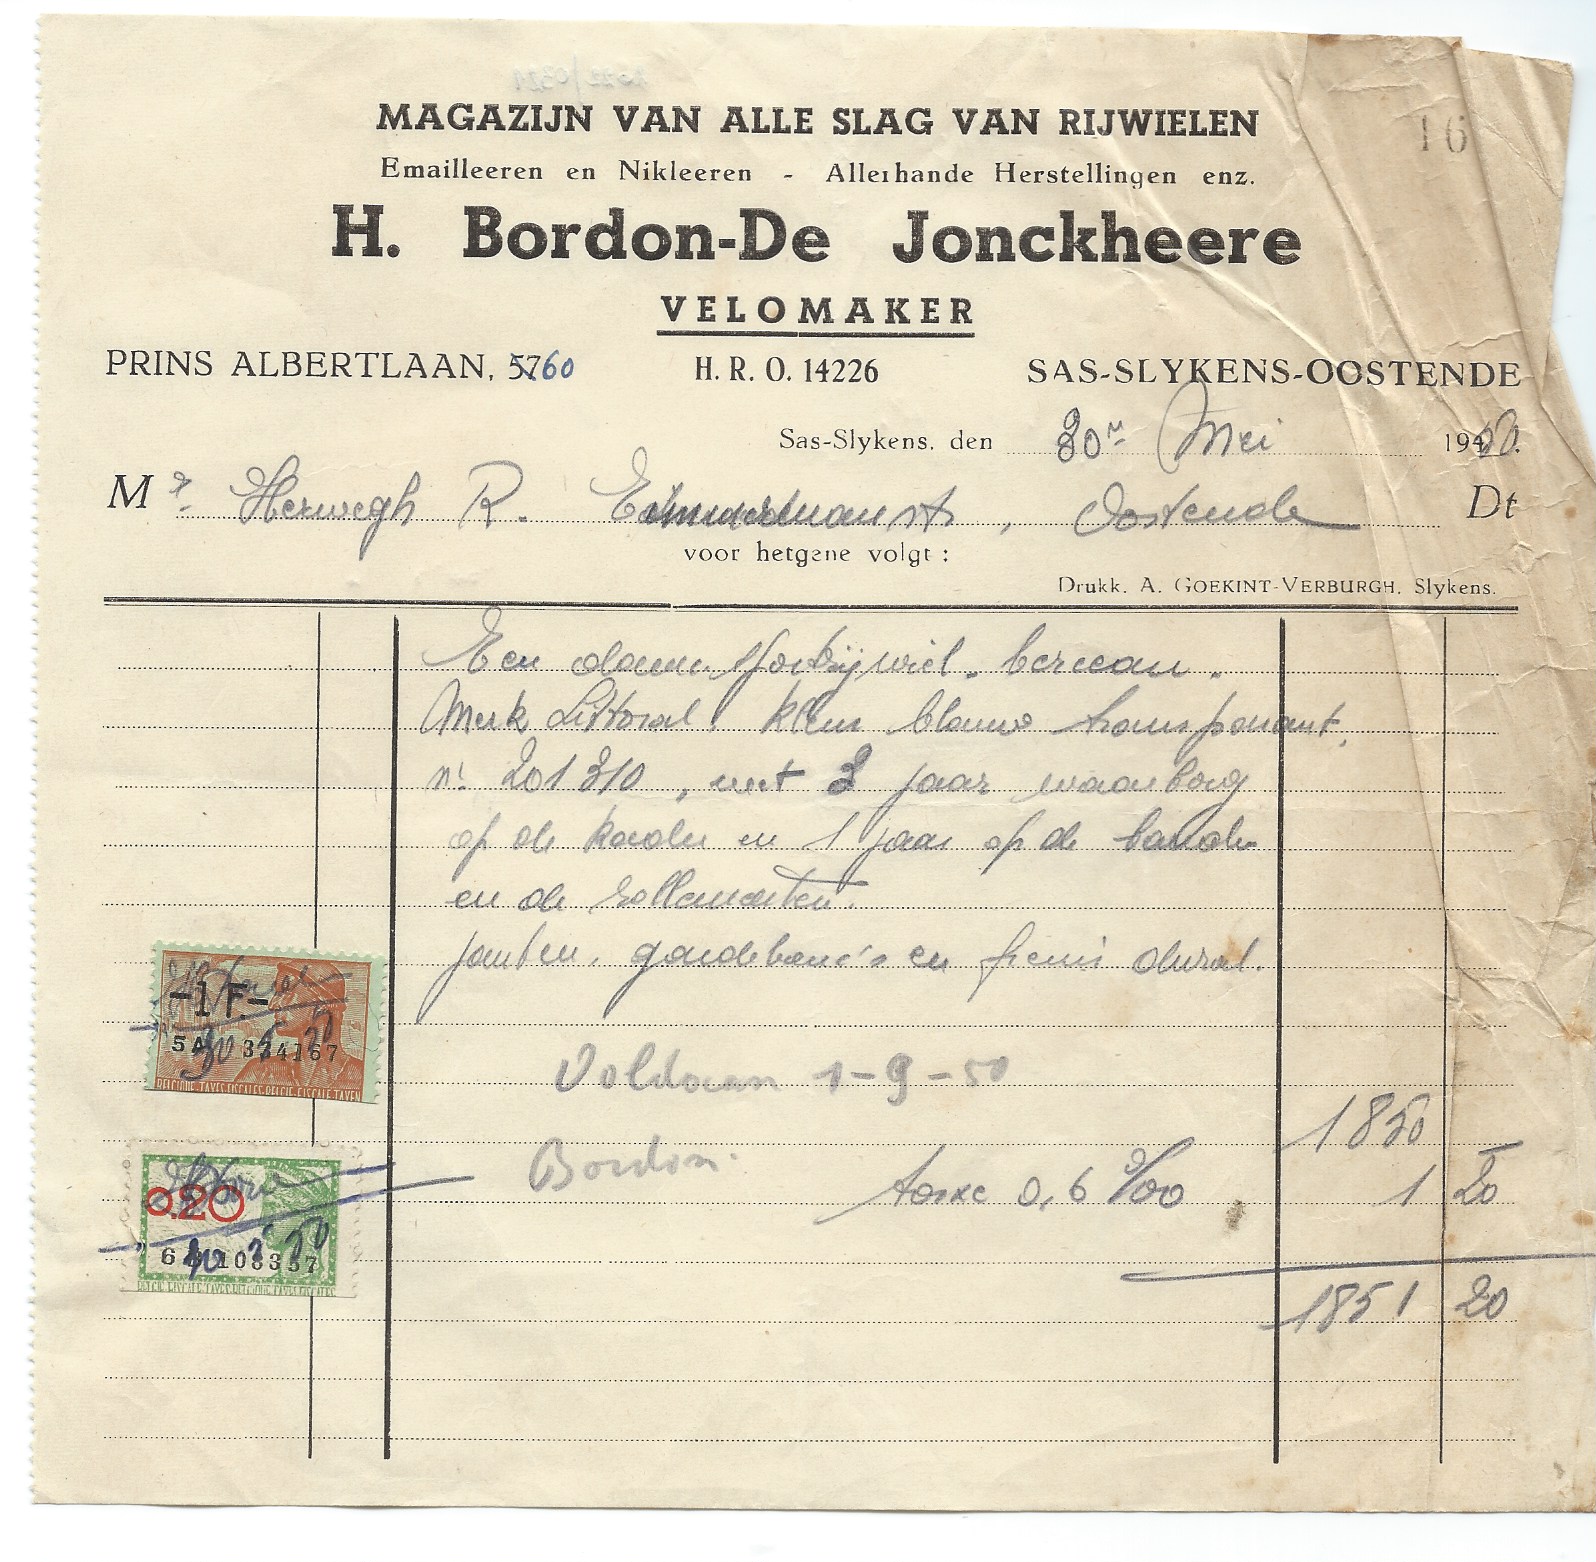 16
MAGAZIJN VAN ALLE SLAG VAN RIJWIELEN
Emailleeren en Nikleeren - Allerhande Herstellingen enz.
H. Bordon-De Jonckheere
VELOMAKER
PRINS ALBERTLAAN, 5760 H. R. O. 14226 SAS-SLYKENS-OOSTENDE
Sas-Slykens, den 30n Mei 1950.
Mr. Herwegh R. Oostende Dt
voor hetgene volgt :
Drukk. A. GOEKINT-VERBURGH, Slykens.
Een damen sportrijwiel. berceau.
Merk Littoral, kleur blauw transparant,
nr 201310, met 3 jaar waarborg
op de kader en 1 jaar op de banden
en de rollementen.
janten, gardebous's en freins dural.
-1 F-
30 5 50
5A 334167
BELGIQUE-TAXES FISCALES-BELGIE-FISCALE TAXEN
Voldaan 1-9-50
1850
Bordon.
taxe 0,6 %00 1 20
0.20
1851 20